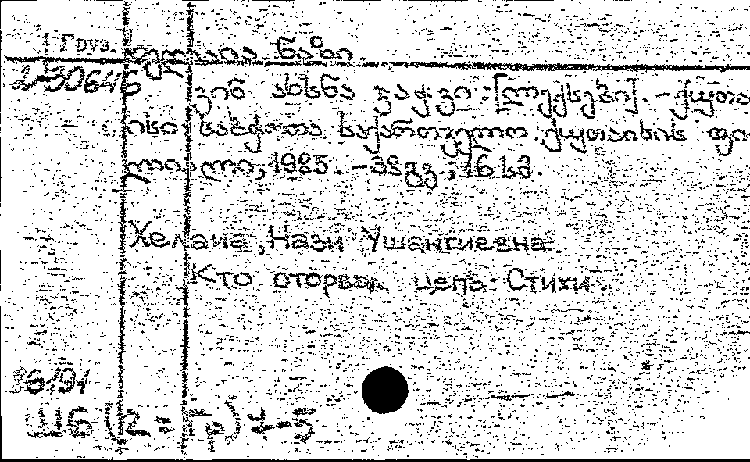 Груз. ხელაია ნაზი
2-50646
ვინ ახსნა ჯაჭვი : [ლექსები]. - ქუთა
ისი : საბჭოთა საქართველო. ქუთაისის ფი
ლიალი, 1985. - 38 გვ ; 16 სმ.
Хелаиа, Нази Ушангиевна
Кто оторвал цепь : Стихи.
16191
ШБ (2 = Гр) 7-5